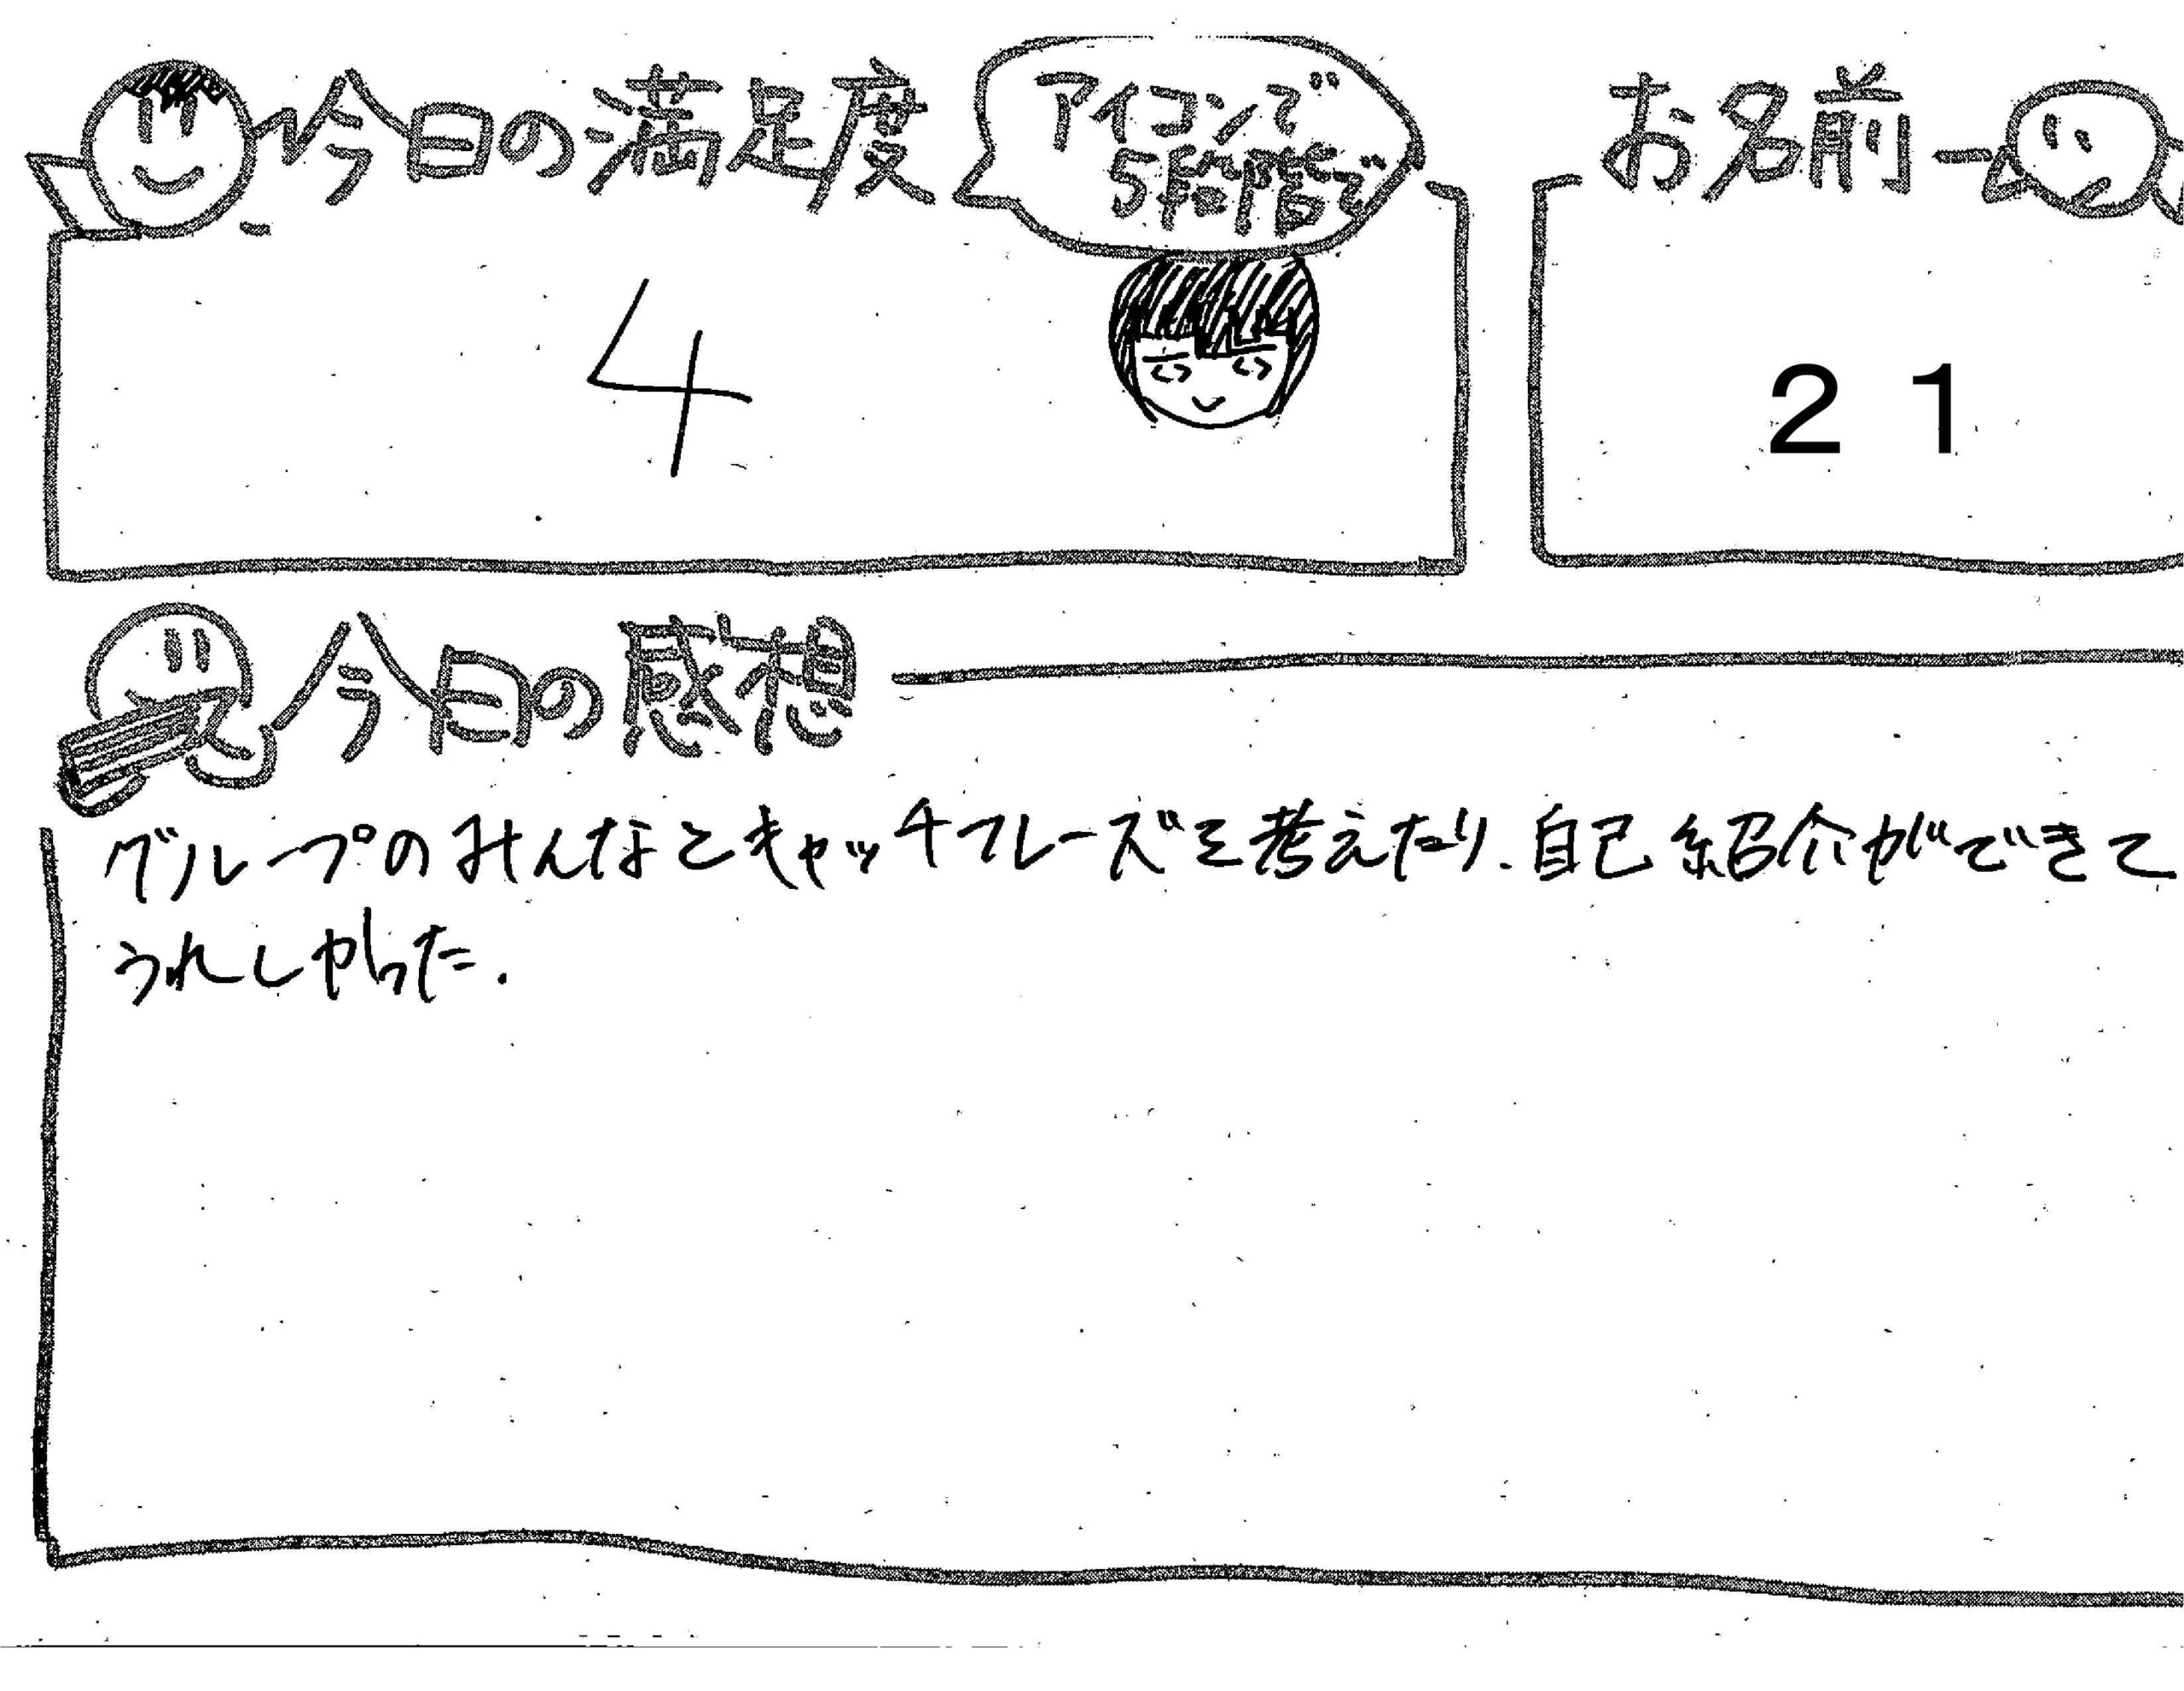 今日の満足度
アイコンで
5段階で
お名前
4
２１
今日の感想
グループのみんなとキャッチフレーズを考えたり、自己紹介ができて
うれしかった.